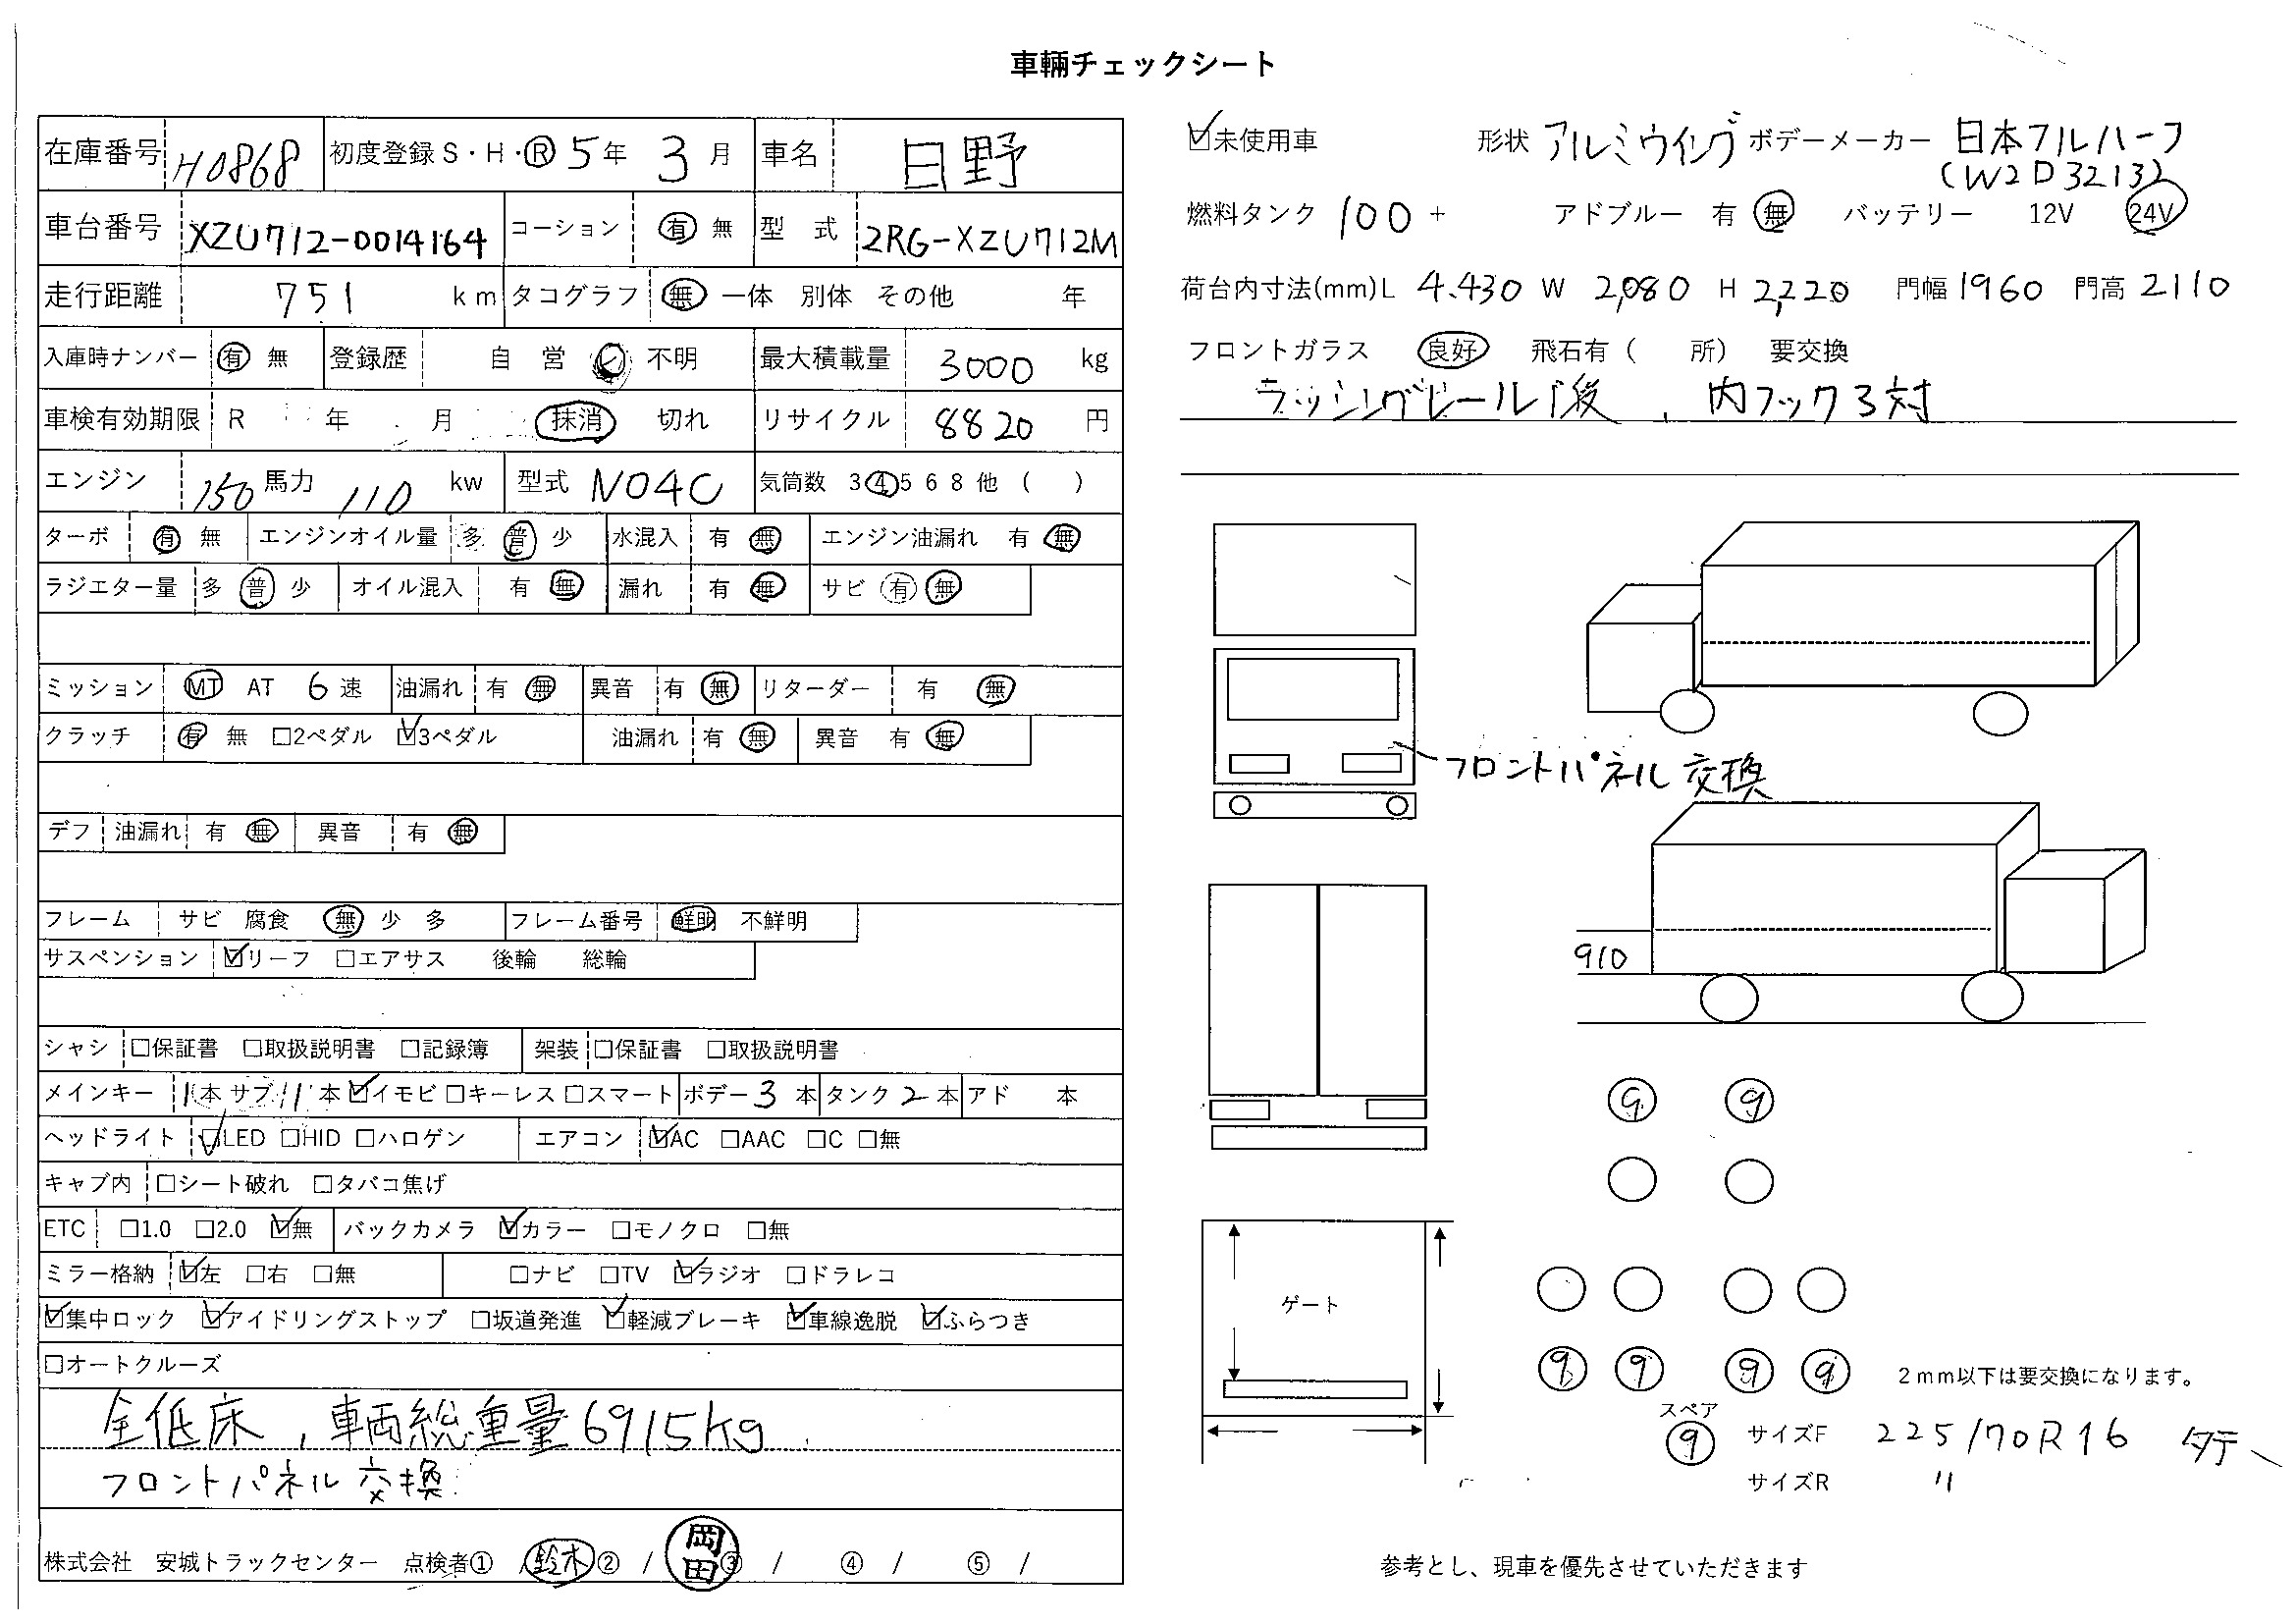 車輛チェックシート
在庫番号 H0868 初度登録 S・H・R 5年 3月 車名 日野
車台番号 XZU712-0014164 コーション 有 無 型 式 2RG-XZU712M
走行距離 751 km タコグラフ 無 一体 別体 その他 年
入庫時ナンバー 有 無 登録歴 自 営 不明 最大積載量 3000 kg
車検有効期限 R 年 月 抹消 切れ リサイクル 8820 円
エンジン 150 馬力 110 kw 型式 N04C 気筒数 3 4 5 6 8 他 ( )
ターボ 有 無 エンジンオイル量 多 普 少 水混入 有 無 エンジン油漏れ 有 無
ラジエター量 多 普 少 オイル混入 有 無 漏れ 有 無 サビ 有 無
ミッション MT AT 6速 油漏れ 有 無 異音 有 無 リターダー 有 無
クラッチ 有 無 □2ペダル ☑3ペダル 油漏れ 有 無 異音 有 無
デフ 油漏れ 有 無 異音 有 無
フレーム サビ 腐食 無 少 多 フレーム番号 鮮明 不鮮明
サスペンション ☑リーフ □エアサス 後輪 総輪
シャシ □保証書 □取扱説明書 □記録簿 架装 □保証書 □取扱説明書
メインキー 1本 サブ 1本 ☑イモビ □キーレス □スマート ボデー 3 本 タンク 2 本 アド 本
ヘッドライト ☑LED □HID □ハロゲン エアコン ☑AC □AAC □C □無
キャブ内 □シート破れ □タバコ焦げ
ETC □1.0 □2.0 ☑無 バックカメラ ☑カラー □モノクロ □無
ミラー格納 ☑左 □右 □無 □ナビ □TV ☑ラジオ □ドラレコ
☑集中ロック ☑アイドリングストップ □坂道発進 ☑軽減ブレーキ ☑車線逸脱 ☑ふらつき
□オートクルーズ
全低床、車両総重量6915kg
フロントパネル交換
株式会社 安城トラックセンター 点検者① / 鈴木 ② / 岡田 ③ / ④ / ⑤ /
☑未使用車 形状 アルミウイング ボデーメーカー 日本フルハーフ
(W2D3213)
燃料タンク 100 + アドブルー 有 無 バッテリー 12V 24V
荷台内寸法(mm) L 4.430 W 2,080 H 2,220 門幅 1960 門高 2110
フロントガラス 良好 飛石有 ( 所) 要交換
ラッシングレール1後、内フック3対
フロントパネル交換
910
9 9
ゲート
9 9 9 9 2mm以下は要交換になります。
スペア
9 サイズF 225/70R16
サイズR 〃
参考とし、現車を優先させていただきます